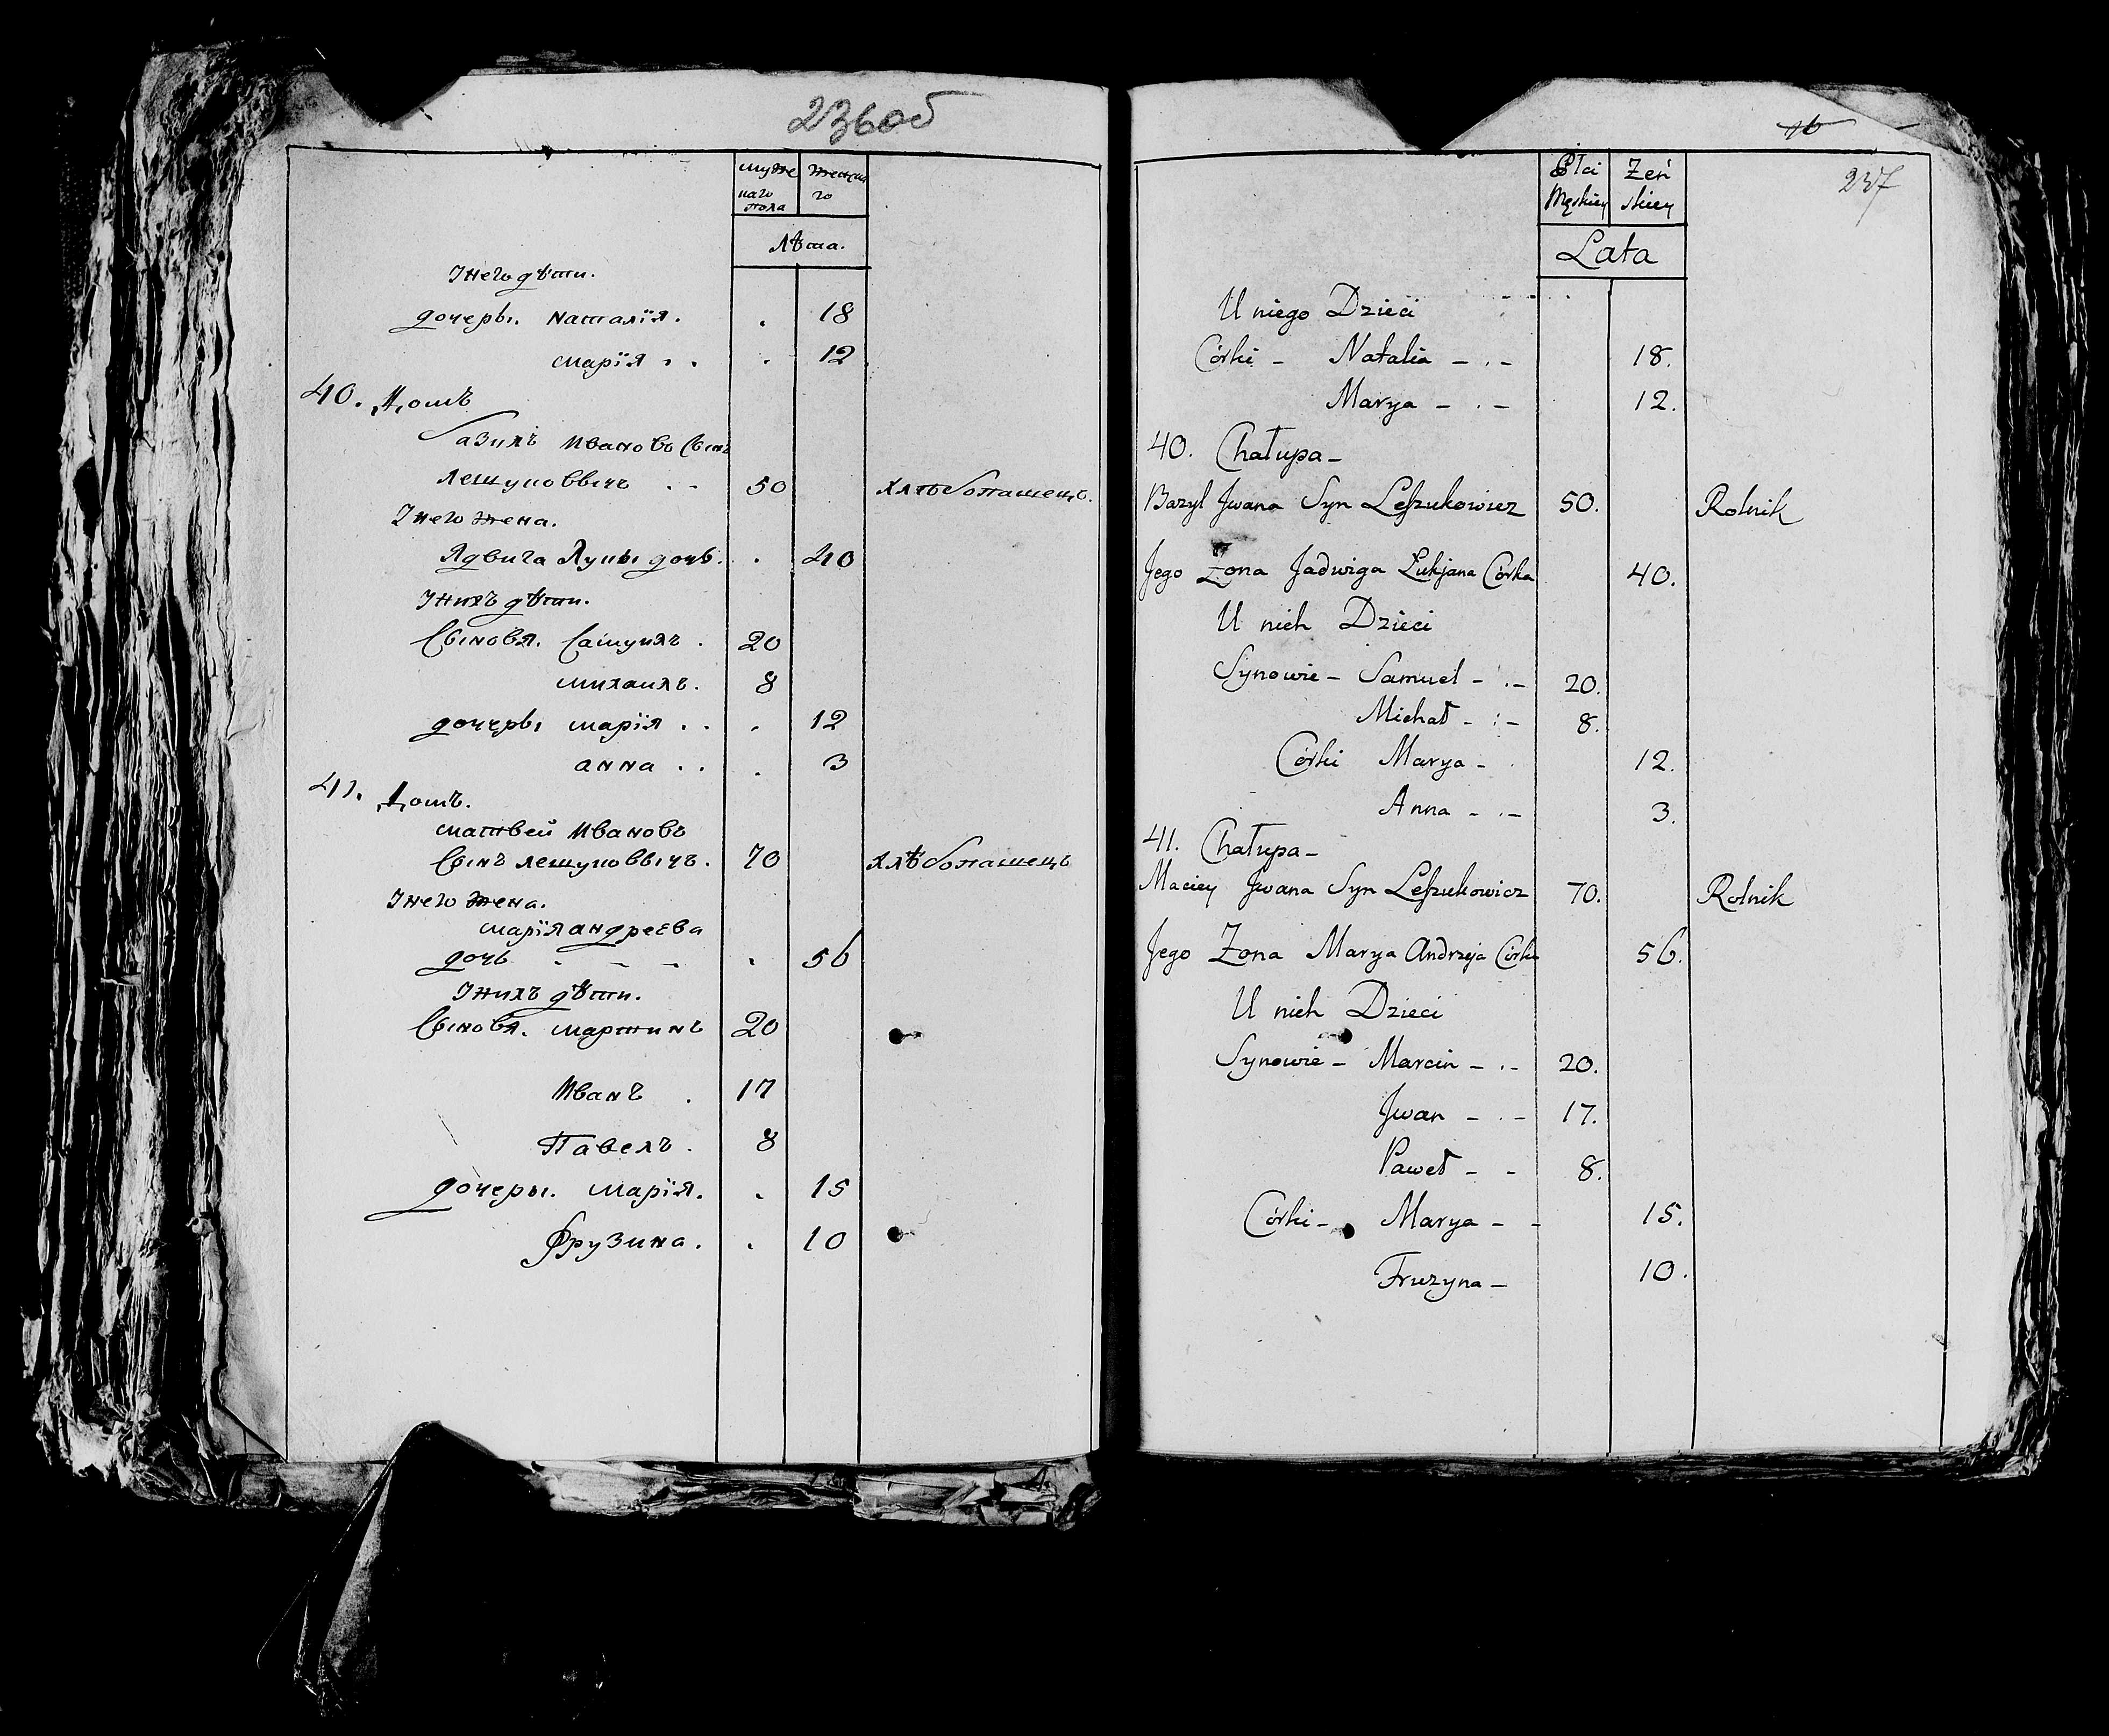 236об
муже
скаго
пола
женска
го
лѣта.
У него дѣти.
дочеры. Наталія. . 18
Марія . . . 12
40. Домъ
Базилъ Ивановъ Сынъ
Лешуковвычъ . - 50 хлѣбопашецъ.
У него жена.
Ядвига Лукы дочь. . 40
У нихъ дѣти.
Сыновя. Самуилъ . 20
Михаилъ. 8
дочеры Марія . . . 12
Анна . . . 3
41. Домъ.
Матвей Ивановъ
Сынъ Лешуковвычъ. 70 хлѣбопашецъ
У него жена.
Марія Андреева
дочь - - - . 56
У нихъ дѣти.
Сыновя. Мартинъ 20
Иванъ . 17
Павелъ . 8
дочеры. Марія. . 15
Фрузина. . 10
16
237
Płci
Męskiey
Żeń
skiey
Lata
U niego Dzieci
Córki - Natalia - . - 18.
Marya - . - 12.
40. Chałupa -
Bazyl Jwana Syn Leszukowicz 50. Rolnik
Jego Żona Jadwiga Łukjana Córka 40.
U nich Dzieci
Synowie - Samuel - . - 20.
Michał - . - 8.
Córki Marya - 12.
Anna - . - 3.
41. Chałupa -
Maciey Jwana Syn Leszukowicz 70. Rolnik
Jego Żona Marya Andrzeja Córka 56.
U nich Dzieci
Synowie - Marcin - . - 20.
Jwan - . - 17.
Paweł - - 8.
Córki - Marya - - 15.
Fruzyna - 10.